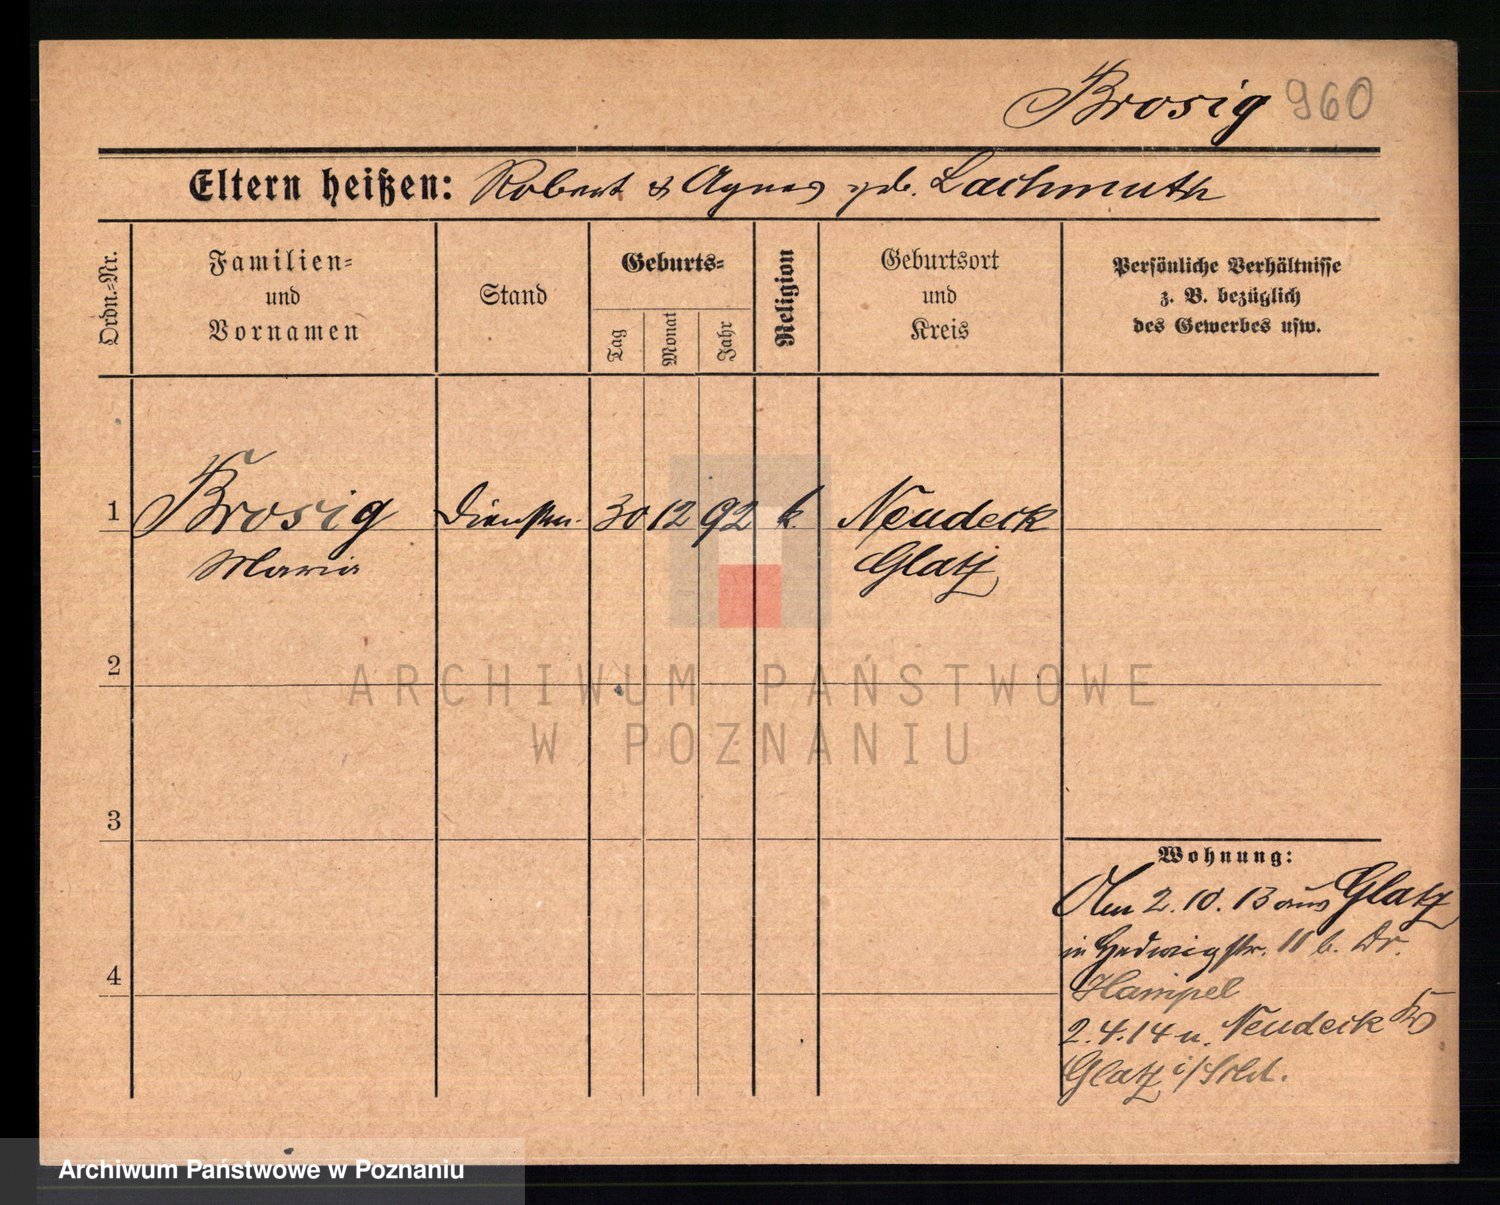 Brosig 960
Eltern heißen: Robert & Agnes geb. Lachmuth
Ordn.=Nr.
Familien=
und
Vornamen
Stand
Geburts=
Tag
Monat
Jahr
Religion
Geburtsort
und
Kreis
Persönliche Verhältnisse
z. B. bezüglich
des Gewerbes usw.
1 Brosig Dienstm. 30 12 92 k. Neudeck
Maria Glatz
2
ARCHIWUM PAŃSTWOWE
W POZNANIU
3
Wohnung:
Am 2.10.13 aus Glatz
in Hedwigstr. 11 b. Dr.
4
Hampel
2.4.14 n. Neudeck Kr
Glatz i/Schl.
Archiwum Państwowe w Poznaniu